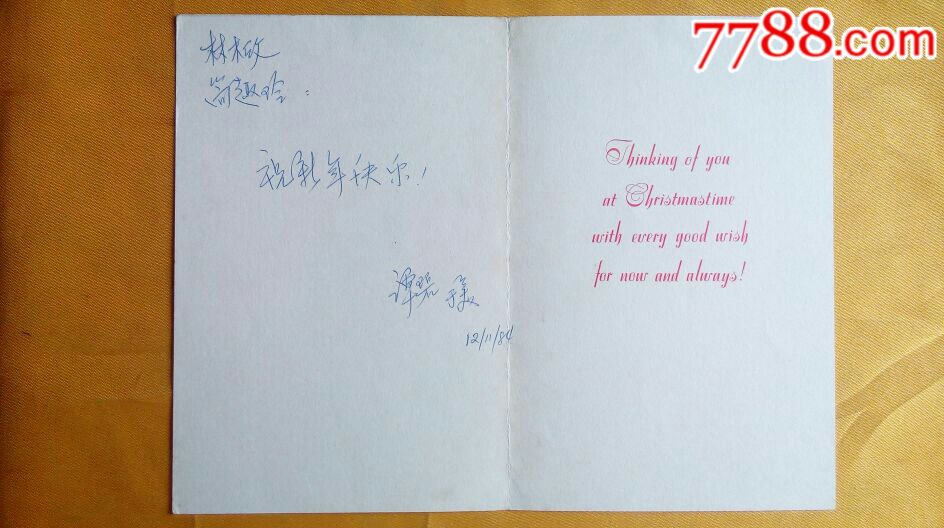 7788.com
林木
祝新年快乐！
谭
12/11/84
Thinking of you
at Christmastime
with every good wish
for now and always!